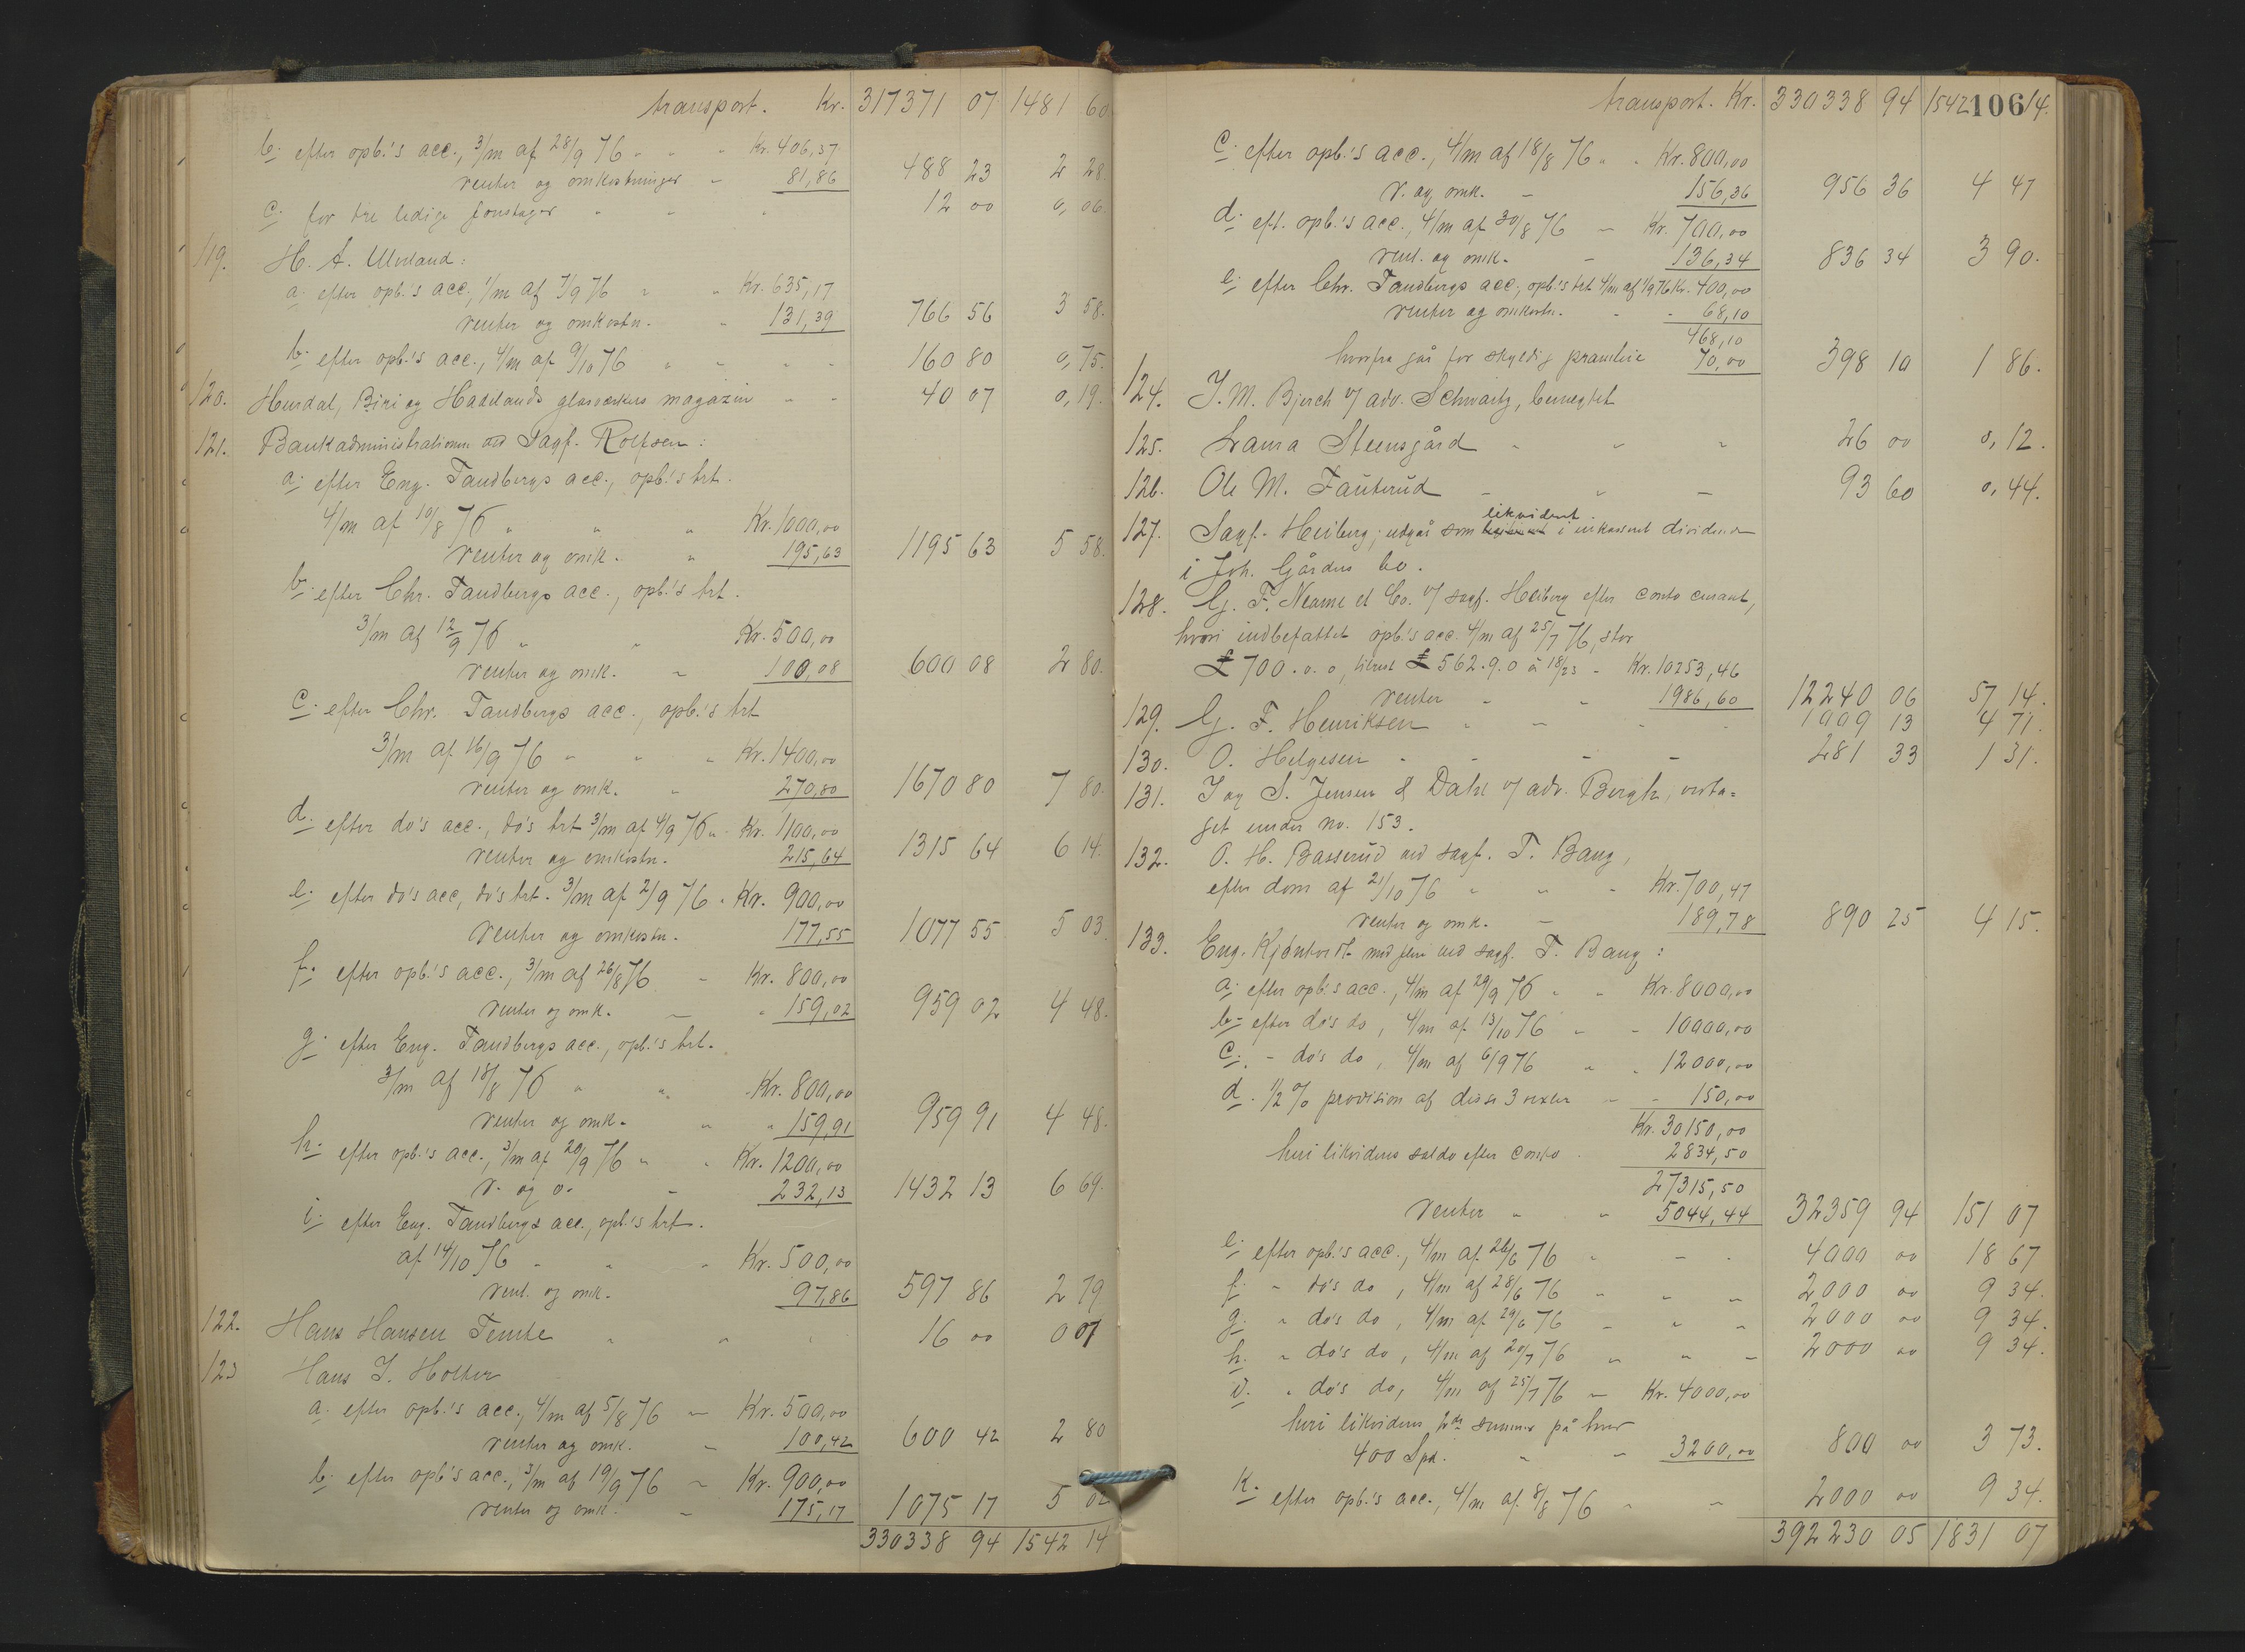 transport. Kr. 317371 07 1481 60
b. efter opb.'s acc., 3/m af 28/9 76 " " " Kr. 406,37
renter og omkostninger " 81,86 488 23 2 28.
c. for tre ledige fonstager " " " 12 00 0,06.
119. H. A. Ulvland:
a. efter opb.'s acc., 1/m af 7/9 76 " " Kr. 635,17
renter og omkostn. " 131,39 766 56 3 58.
b. efter opb.'s acc., 4/m af 9/10 76 " " " " 160 80 0,75.
120. Hurdal, Biri og Hadelands glasværkers magazin " " 40 07 0,19.
121. Bankadministrationen ved Sagf. Rolfsen:
a. efter Eng. Tandbergs acc., opb.'s trt.
4/m af 10/8 76 " " " Kr. 1000,00
renter og omk. " 195,63 1195 63 5 58.
b. efter Chr. Tandbergs acc., opb.'s trt.
3/m af 12/9 76 " " Kr. 500,00
renter og omk. " 100,08 600 08 2 80.
c. efter Chr. Tandbergs acc., opb.'s trt
3/m af 16/9 76 " " " Kr. 1400,00
renter og omk. " 270,80 1670 80 7 80.
d. efter do's acc., do's trt 3/m af 4/9 76 " Kr. 1100,00
renter og omkostn. 215,64 1315 64 6 14.
e. efter do's acc, do's trt. 3/m af 2/9 76 " Kr. 900,00
renter og omkostn. 177,55 1077 55 5 03.
f. efter opb.'s acc., 3/m af 26/8 76 " Kr. 800,00
renter og omk. " " 159,02 959 02 4 48.
g. efter Eng. Tandbergs acc., opb.'s trt.
3/m af 18/8 76 " " Kr. 800,00
renter og omk. " " 159,91 959 91 4 48.
h. efter opb.'s acc., 3/m af 20/9 76 " " Kr. 1200,00
r. og o. " 232,13 1432 13 6 69.
i. efter Eng. Tandbergs acc., opb.'s trt.
af 14/10 76 " " " Kr. 500,00
rent. og omk. 97,86 597 86 2 79
122. Hans Hansen Temte " " " 16 00 0 07
123 Hans J. Holter
a. efter opb.'s acc., 4/m af 5/8 76 " Kr. 500,00
renter og omk. " 100,42 600 42 2 80
b. efter opb's acc., 3/m af 19/9 76 " Kr. 900,00
renter og omk. " 175,17 1075 17 5 02
330338 94 1542 14
transport. Kr. 330338 94 1542 106 14.
c. efter opb.'s acc., 4/m af 18/8 76 " " Kr. 800,00
r. og omk. " 156,36 956 36 4 47
d. eft. opb.'s acc., 4/m af 30/8 76 " Kr. 700,00
rent. og omk. " 136,34 836 34 3 90.
e. efter Chr. Tandbergs acc., opb.'s trt 4/m af 1/9 76 Kr. 400,00
renter og omkostn. " " 68,10
468,10
hvorfra går for skyldig præmie 70,00 398 10 1 86.
124. J. M. Bjerch v/ adv. Schwartz, benegtet
125. Laura Steensgård " " " 26 00 0,12.
126. Ole M. Fauterud " " " 93 60 0,44.
likvident
127. Sagf. Heiberg; udgår som i inkasseret dividende
i Joh. Gårders bo.
128. G. F. Neame et Co. v/ sagf. Heiberg efter conto curant,
hvori indbefattet opb.'s acc. 4/m af 25/7 76, stor
£ 700.0.0, tilrest £ 562.9.0 à 18/23 " Kr. 10253,46
renter " " 1986,60 12240 06 57 14.
129. G. F. Henriksen " " " " 1009 13 4 71.
130. O. Helgesen " " " " 281 33 1 31.
131. J og S. Jensen & Dahl v/ adv. Bergh, vedta-
get under no. 153.
132. O. H. Basserud ved sagf. T. Bang,
efter dom af 21/10 76 " " " Kr. 700,47
renter og omk. " 189,78 890 25 4 15.
133. Eng. Kjøntvedt med flere ved sagf. T. Bang:
a. efter opb.'s acc., 4/m af 29/9 76 " " Kr. 8000,00
b. efter do's do, 4/m af 13/10 76 " " 10000,00
c. " do's do, 4/m af 6/9 76 " " 12000,00
d. 1/2 % provision af disse 3 vexler " " 150,00
Kr. 30150,00
heri likvideres saldo efter conto . 2834,50
27315,50
renter " " 5044,44 32359 94 151 07
e. efter opb.'s acc., 4/m af 26/6 76 " " " 4000 00 18 67
f. " do's do, 4/m af 28/6 76 " " " 2000 00 9 34.
g. " do's do, 4/m af 29/6 76 " " " 2000 00 9 34.
h. " do's do, 4/m af 20/7 76 " " " 2000 00 9 34.
i. " do's do, 4/m af 25/7 76 " Kr. 4000,00
heri likvideres 2de summer på hver
400 Spd. " " 3200,00 800 00 3 73.
k. efter opb.'s acc., 4/m af 8/8 76 " " 2000 00 9 34.
392230 05 1831 07